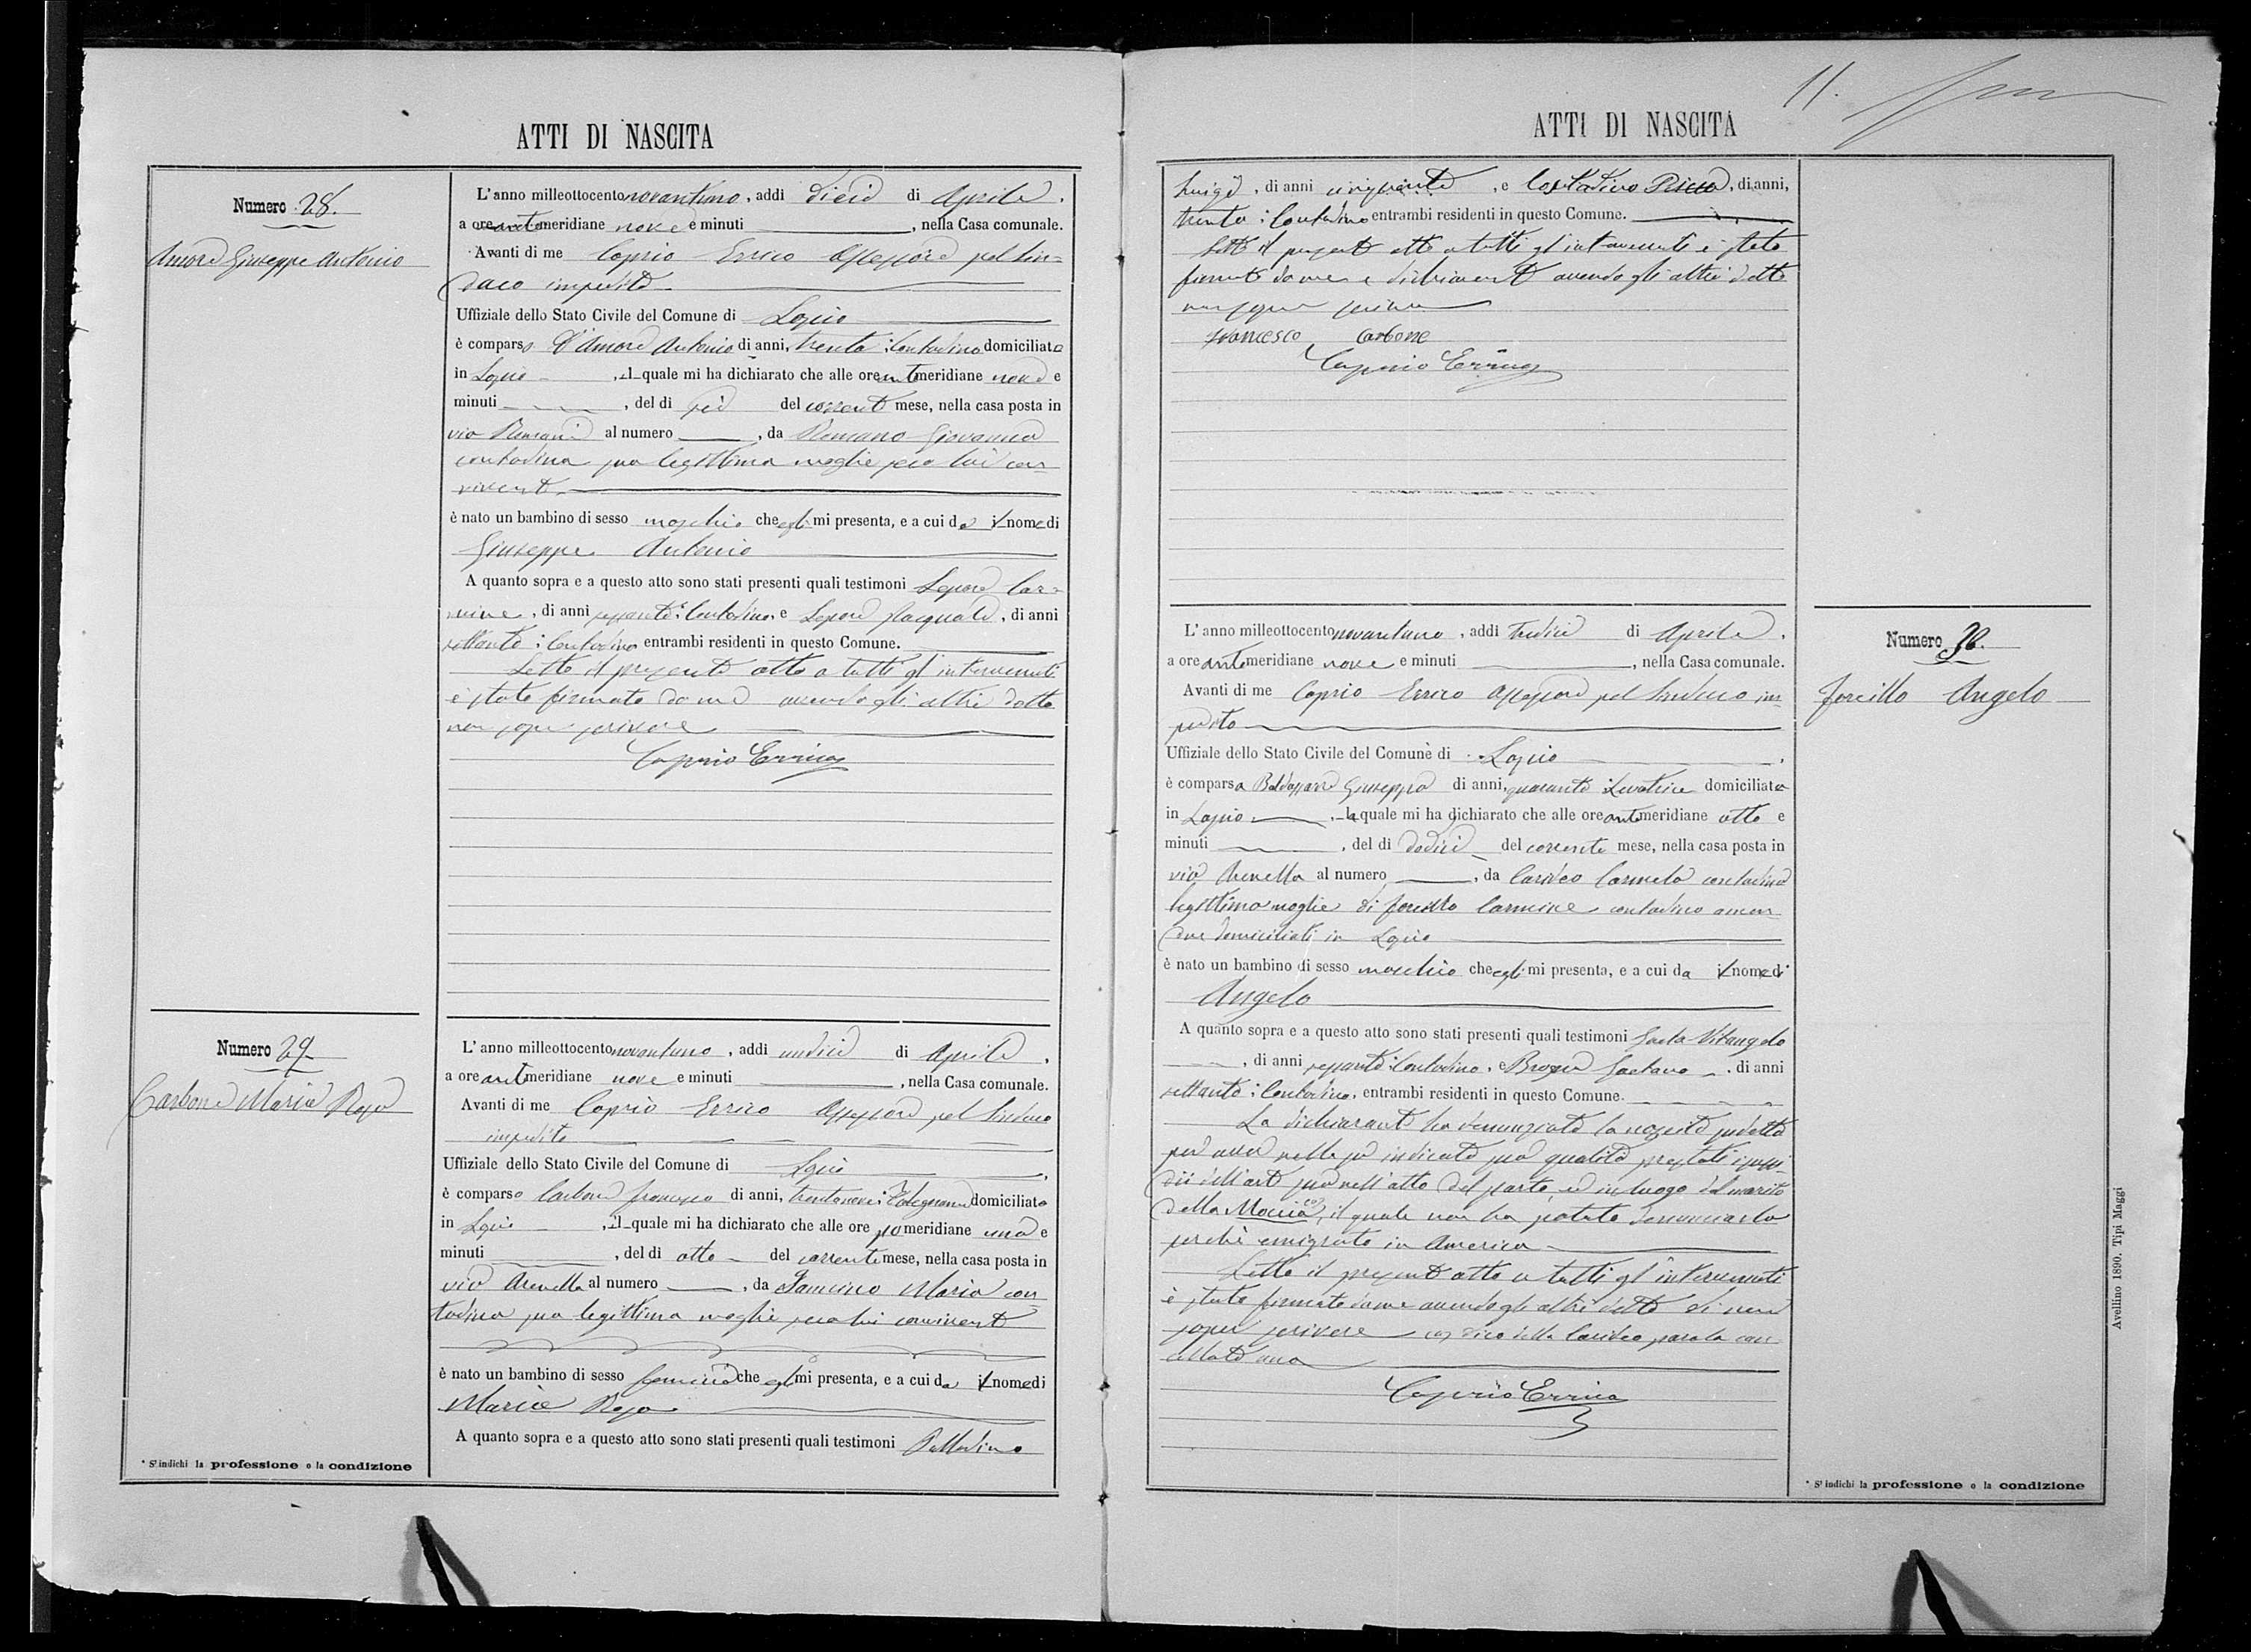 ATTI DI NASCITA
Numero 28.
Amore Giuseppe Antonio
L'anno milleottocento novantuno, addi dieci di Aprile,
a ore antemeridiane nove e minuti, nella Casa comunale.
Avanti di me Caprio Errico Assessore pel Sin-
daco impedito
Uffiziale dello Stato Civile del Comune di Lapio
è comparso D'Amore Antonio di anni, trenta; Contadino domiciliato
in Lapio, il quale mi ha dichiarato che alle ore antemeridiane nove e
minuti, del dì sei del corrente mese, nella casa posta in
via Romani al numero, da Romano Giovanna
contadina sua legittima moglie seco lui con-
vivente
è nato un bambino di sesso maschio che egli mi presenta, e a cui da il nome di
Giuseppe Antonio
A quanto sopra e a questo atto sono stati presenti quali testimoni Lepore Car-
mine, di anni sessanta; Contadino, e Lepore Pasquale, di anni
settanta; Contadino entrambi residenti in questo Comune.
Letto il presente atto a tutti gl'intervenuti
è stato firmato da me avendo gli altri detto
non saper scrivere
Caprio Errico
Numero 29
Carbone Maria Rosa
L'anno milleottocento novantuno, addi undici di Aprile,
a ore antemeridiane nove e minuti, nella Casa comunale.
Avanti di me Caprio Errico Assessore pel Sindaco
impedito
Uffiziale dello Stato Civile del Comune di Lapio
è comparso Carbone Francesco di anni, trentanove; Falegname domiciliato
in Lapio, il quale mi ha dichiarato che alle ore pomeridiane una e
minuti, del dì otto del corrente mese, nella casa posta in
via Arenella al numero, da Maria con-
tadina sua legittima moglie seco lui convivente
è nato un bambino di sesso femminile che egli mi presenta, e a cui da il nome di
Maria Rosa
A quanto sopra e a questo atto sono stati presenti quali testimoni Palladino
* S'indichi la professione o la condizione
11.
ATTI DI NASCITA
Luigi, di anni cinquanta, e Costadino, di anni,
trenta; Contadino entrambi residenti in questo Comune.
Letto il presente atto a tutti gl'intervenuti è stato
firmato da me e dichiarante avendo gli altri detto
non saper scrivere
Francesco Carbone
Caprio Errico
L'anno milleottocento novantuno, addi tredici di Aprile,
a ore antemeridiane nove e minuti, nella Casa comunale.
Avanti di me Caprio Errico Assessore pel Sindaco im-
pedito
Uffiziale dello Stato Civile del Comune di Lapio
è comparsa Baldassarre Giuseppa di anni, quaranta; Levatrice domiciliata
in Lapio, la quale mi ha dichiarato che alle ore antemeridiane otto e
minuti, del dì dodici del corrente mese, nella casa posta in
via Arenella al numero, da Carideo Carmela contadina
legittima moglie di Forcillo Carmine contadino amen-
due domiciliati in Lapio
è nato un bambino di sesso maschio che egli mi presenta, e a cui da il nome di
Angelo
A quanto sopra e a questo atto sono stati presenti quali testimoni Gaeta Vitangelo
, di anni sessanta; Contadino, e Gaetano, di anni
settanta; Contadino, entrambi residenti in questo Comune.
La dichiarante ha denunziata la nascita predetta
per aver nella più indicata sua qualità prestati i sussi-
dii dell'arte sua nell'atto del parto, ed in luogo del marito
della Moccia, il quale non ha potuto denunciarlo
perchè emigrato in America
Letto il presente atto a tutti gl'intervenuti
è stato firmato da me avendo gli altri detto di non
saper scrivere dico della Carideo, parola can-
cellata una
Caprio Errico
Numero 30.
Forcillo Angelo
* S'indichi la professione o la condizione
Avellino 1890. Tipi Maggi